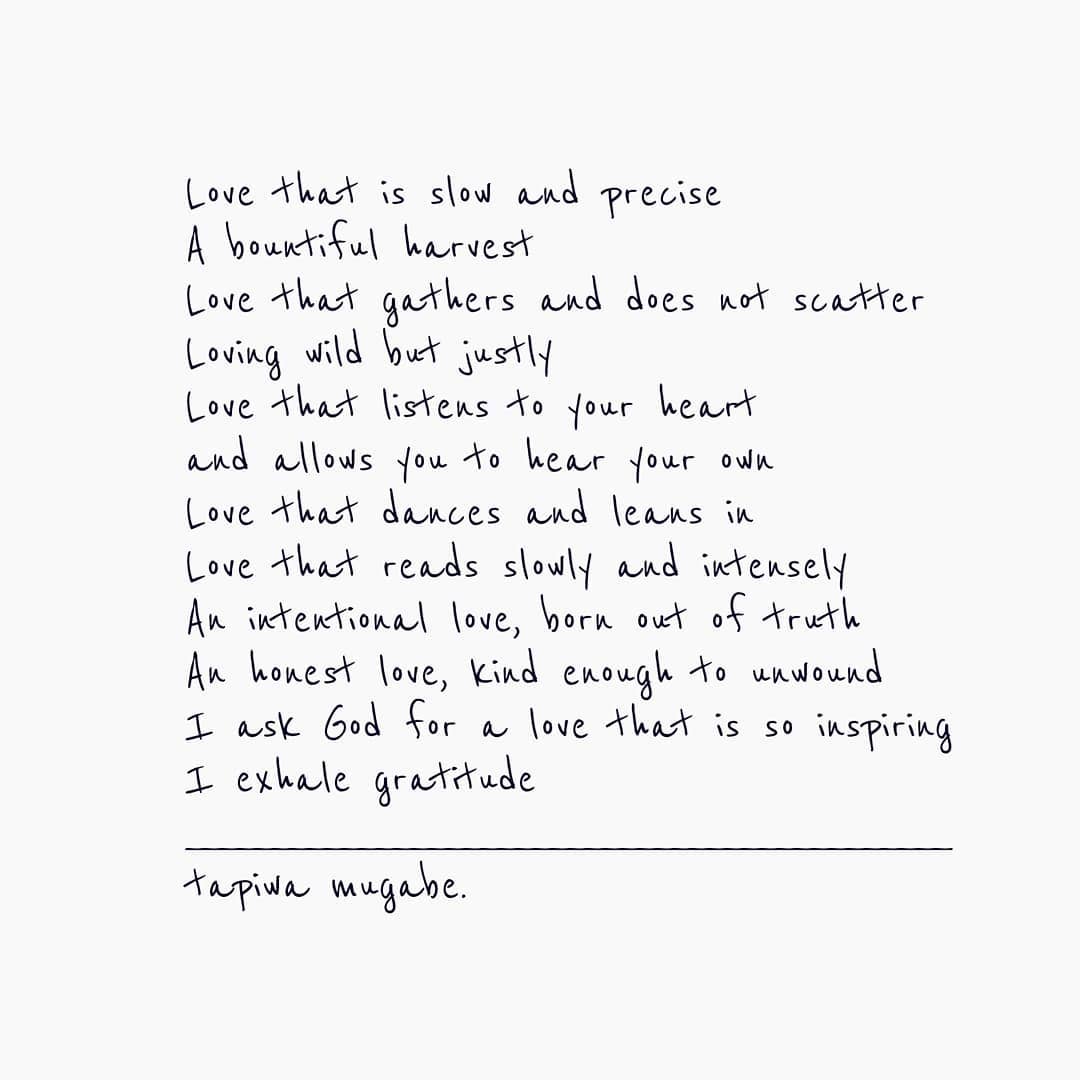 Love that is slow and precise
A bountiful harvest
Love that gathers and does not scatter
Loving wild but justly
Love that listens to your heart
and allows you to hear your own
Love that dances and leans in
Love that reads slowly and intensely
An intentional love, born out of truth
An honest love, kind enough to unwound
I ask God for a love that is so inspiring
I exhale gratitude
tapiwa mugabe.